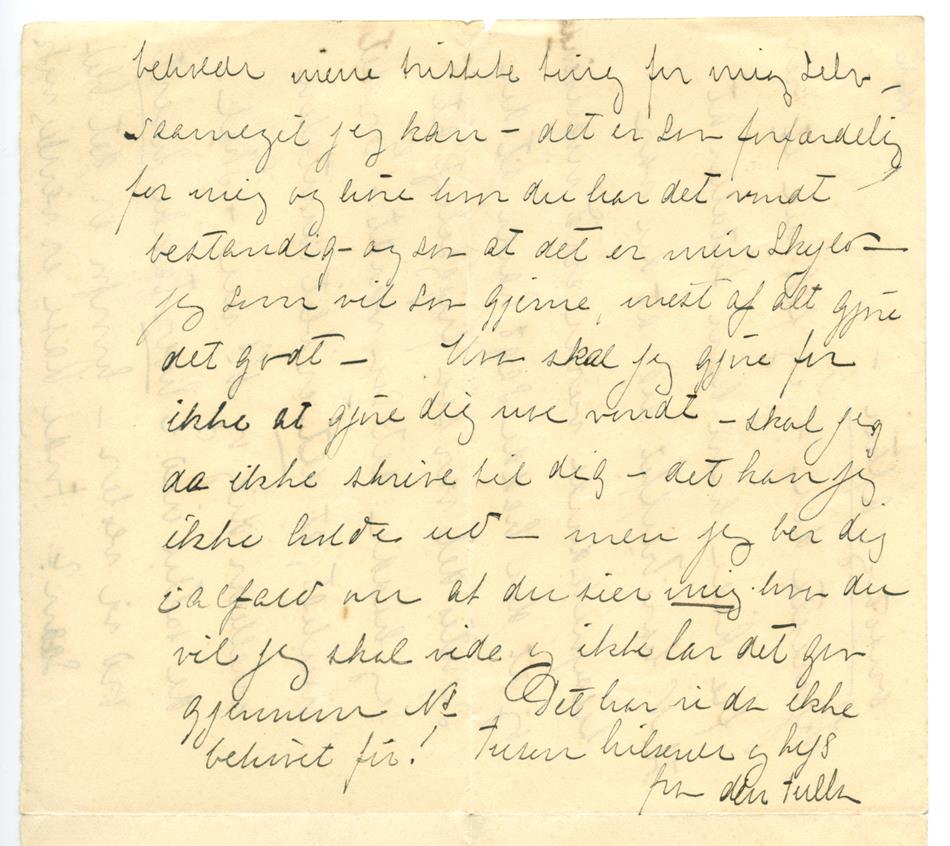 mine tristste ting for mig selv –
saameget jeg kan – det er saa forfærdelig
for mig og höre hvor du har det vondt
bestandig – og saa at det er min Skyld –
jeg som vil saa gjerne, mest af alt gjöre
det godt – Hva skal jeg gjöre for
ikke at gjöre dig noe vondt – skal jeg
da ikke skrive til dig – det kan jeg
ikke holde ud – men jeg ber dig
ialfald om at du sier mig hva du
vil jeg skal vide og ikke lar det gaa
gjennem Det har vi da ikke
behövet för! Tusen hilsener og kys
fra din Tulla